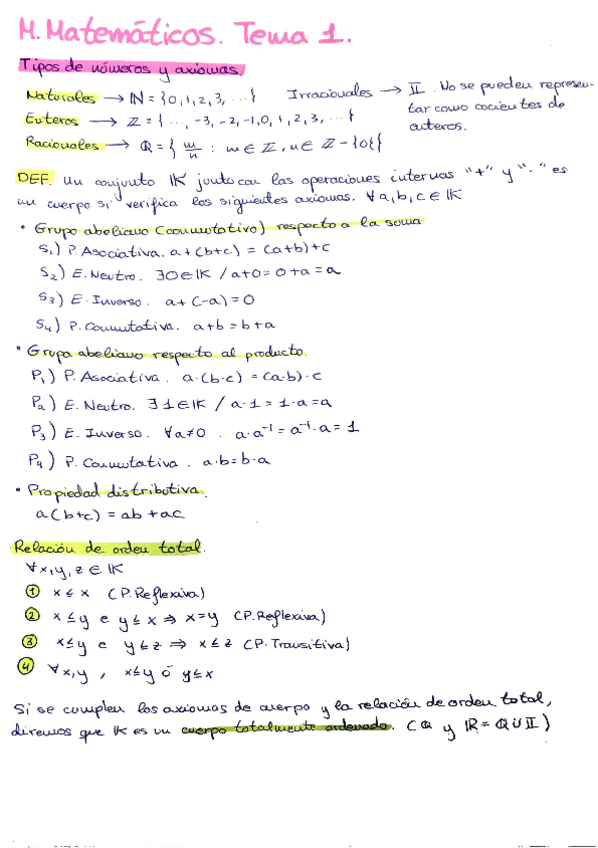 M. Matemáticos. Tema 1.
Tipos de números y axiomas.
Naturales → ℕ = {0, 1, 2, 3, ...}
Irracionales → 𝕀. No se pueden represen-
tar como cocientes de
enteros.
Enteros → ℤ = {..., -3, -2, -1, 0, 1, 2, 3, ...}
Racionales → ℚ = { m/n : m ∈ ℤ, n ∈ ℤ - {0} }
DEF. Un conjunto 𝕂 junto con las operaciones internas "+" y "·" es
un cuerpo si verifica los siguientes axiomas. ∀a, b, c ∈ 𝕂
• Grupo abeliano (conmutativo) respecto a la suma
S₁) P. Asociativa. a + (b+c) = (a+b) + c
S₂) E. Neutro. ∃0 ∈ 𝕂 / a+0 = 0+a = a
S₃) E. Inverso. a + (-a) = 0
S₄) P. Conmutativa. a+b = b+a
• Grupo abeliano respecto al producto.
P₁) P. Asociativa. a·(b·c) = (a·b)·c
P₂) E. Neutro. ∃1 ∈ 𝕂 / a·1 = 1·a = a
P₃) E. Inverso. ∀a≠0. a·a⁻¹ = a⁻¹·a = 1
P₄) P. Conmutativa. a·b = b·a
• Propiedad distributiva.
a(b+c) = ab + ac
Relación de orden total.
∀x, y, z ∈ 𝕂
① x ≤ x (P. Reflexiva)
② x ≤ y e y ≤ x ⇒ x = y (P. Reflexiva)
③ x ≤ y e y ≤ z ⇒ x ≤ z (P. Transitiva)
④ ∀x, y, x ≤ y ó y ≤ x
Si se cumplen los axiomas de cuerpo y la relación de orden total,
diremos que 𝕂 es un cuerpo totalmente ordenado. (ℚ y ℝ = ℚ ∪ 𝕀)